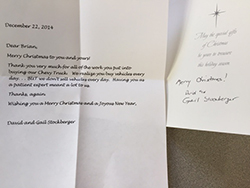 December 22, 2014
Dear Brian,
Merry Christmas to you and yours!
Thank you very much for all of the work you put into
buying our Chevy Truck. We realize you buy vehicles every
day. . . BUT we don't sell vehicles every day. Having you as
a patient expert meant a lot to us.
Thanks again.
Wishing you a Merry Christmas and a Joyous New Year,
David and Gail Stockberger
May the special gifts
of Christmas
be yours to treasure
the holiday season.
Merry Christmas!
David and
Gail Stockberger